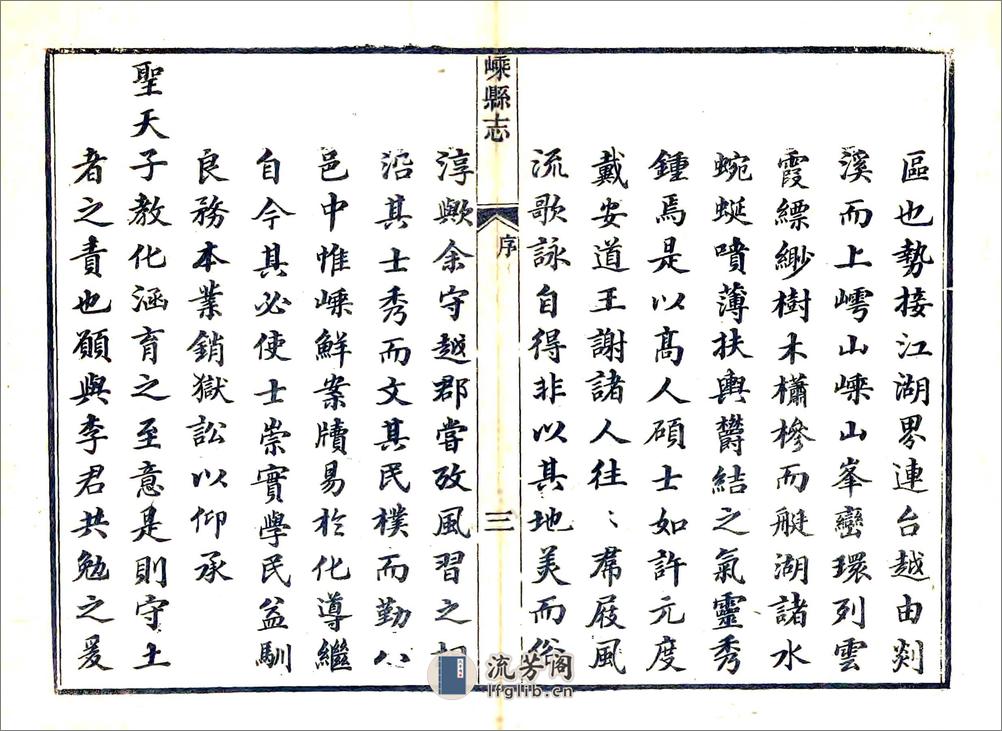 區也勢接江湖界連台越由剡
溪而上嶀山嵊山峯巒環列雲
霞縹緲樹木櫹槮而艇湖諸水
蜿蜒噴薄扶輿鬱結之氣靈秀
鍾焉是以高人碩士如許元度
戴安道王謝諸人往〻羣屐風
流歌詠自得非以其地美而俗
嵊縣志
序
三
淳歟余守越郡嘗攷風習之
沿其士秀而文其民樸而勤八
邑中惟嵊鮮案牘易於化導繼
自今其必使士崇實學民益馴
良務本業銷獄訟以仰承
聖天子教化涵育之至意是則守土
者之責也願與李君共勉之爰
流芳阁
lfglib.cn